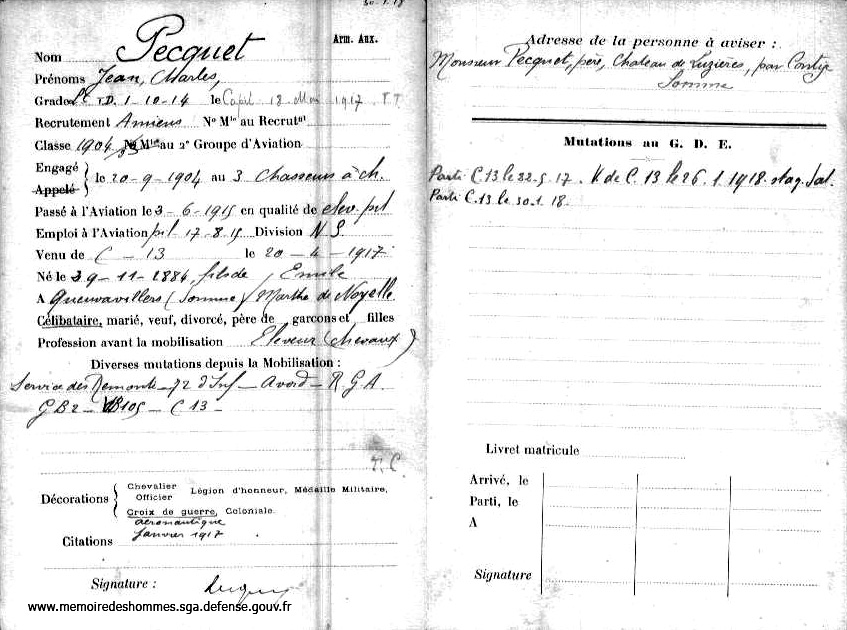 30-1-18
Arm. Aux.
Nom Pecquet
Prénoms Jean, Charles,
Grades Lt T.D. 1-10-14 le Capit 18 Mai 1917 T.T
Recrutement Amiens No Mle au Recrutet
Classe 1904 No Mle au 2e Groupe d'Aviation
Engagé
Appelé } le 20-9-1904 au 3 Chasseurs à ch.
Passé à l'Aviation le 3-6-1915 en qualité de elev. pil
Emploi à l'Aviation pil 17-8-15 Division N S.
Venu de C-13 le 20-4-1917
Né le 29-11-1884, fils de Emile
A Quevauvillers (Somme) Marthe de Noyelle
Célibataire, marié, veuf, divorcé, père de garçons et filles
Profession avant la mobilisation Eleveur (chevaux)
Diverses mutations depuis la Mobilisation :
Service des Remonte - 72 d'Inf - Avord - R.G.A
GB2 - VB105 - C13 -
T.C.
Décorations { Chevalier
Officier Légion d'honneur, Médaille Militaire,
Croix de guerre, Coloniale.
aéronautique
Citations Janvier 1917
Signature :
www.memoiredeshommes.sga.defense.gouv.fr
Adresse de la personne à aviser :
Monsieur Pecquet, père, Chateau de Luzières, par Conty
Somme
Mutations au G. D. E.
Parti C.13 le 22-5-17. V de C.13 le 26.1.1918. stag.
Parti C.13 le 30.1.18.
Livret matricule
Arrivé, le
Parti, le
A
Signature